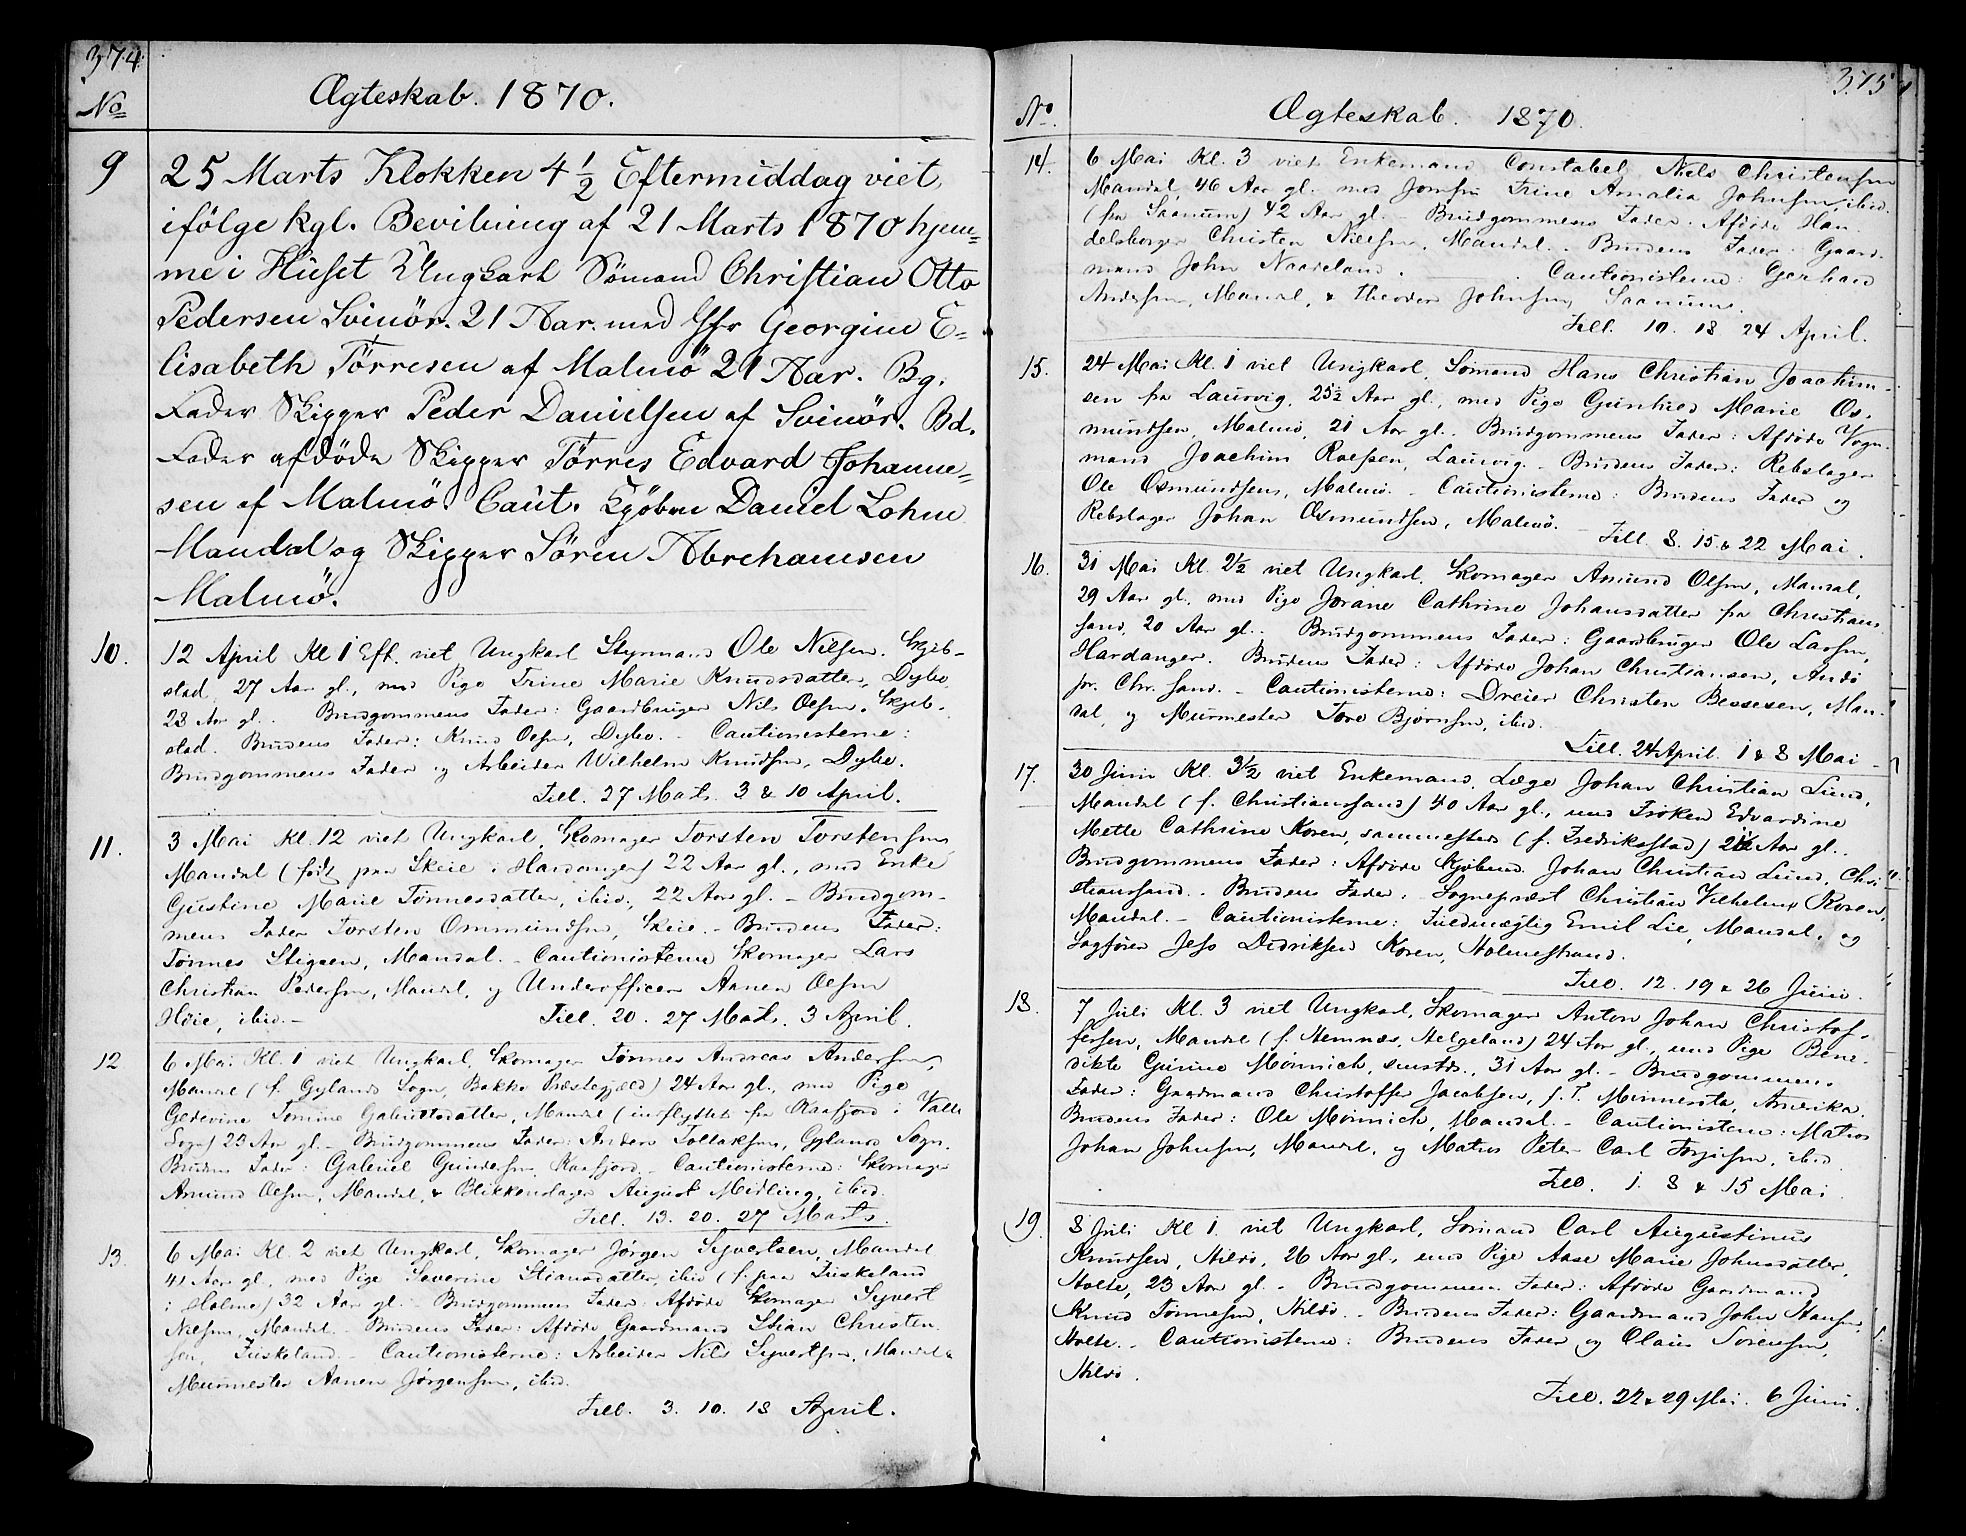 374
No
Ægteskab. 1870.
9
25 Marts Klokken 4 1/2 Eftermiddag viet,
ifölge kgl. Bevilning af 21 Marts 1870 hjem=
me i Huset Ungkarl Sömand Christian Otto
Pedersen Svinör. 21 Aar. med Jfr Georgine E=
lisabeth Törresen af Malmö 21 Aar. Bg.
Fader Skipper Peder Danielsen af Svinör. Bd.
Fader afdöde Skipper Törres Edvard Johanne=
sen af Malmö. Caut. Kjöbm Daniel Lohne
Mandal og Skipper Sören Abrehamsen
Malmö.
10.
12 April Kl 1 Eft. viet Ungkarl Styrmand Ole Nilsen. Skjeb-
stad, 27 Aar gl., med Pige Trine Marie Knudsdatter, Dybo,
23 Aar gl.. Brudgommens Fader: Gaardbruger Nils Olsen, Skjeb-
stad. Brudens Fader: Knud Olsen, Dybo. - Cautionisterne:
Brudgommens Fader og Arbeider Wilhelm Knudsen, Dybo.
Till. 27 Marts. 3 & 10 April.
11.
3 Mai Kl. 12 viet Ungkarl, Skomager Torsten Torstensen
Mandal (født paa Skeie i Hardanger) 22 Aar gl., med Enke
Gustine Marie Tønnesdatter, ibid., 22 Aar gl. - Brudgom-
mens Fader Torsten Ommundsen, Skeie. - Brudens Fader:
Tønnes Stigsen, Mandal. - Cautionisterne Skomager Lars
Christian Pedersen, Mandal, og Underofficer Aanen Olsen
Høie, ibid. - Till. 20. 27 Marts. 3 April.
12
6 Mai Kl. 1 viet Ungkarl, Skomager Tønnes Andreas Andersen,
Mandal (f. Gylands Sogn, Bakke Præstegjæld) 24 Aar gl., med Pige
Gedevine Tomine Gabrielsdatter, Mandal (indflyttet fra i Valle
Sogn) 23 Aar gl. - Brudgommens Fader: Anders Tollaksen, Gylands Sogn.
Brudens Fader: Gabriel Gundersen, - Cautionisterne: Skomager
Amund Olsen, Mandal, & Blikkenslager August Midling, ibid.
Till. 13. 20. 27 Marts.
13.
6 Mai Kl. 2 viet Ungkarl, Skomager Jørgen Syvertsen, Mandal
41 Aar gl., med Pige Severine Stiansdatter, ibid (f. paa Fuskeland
i Holme) 32 Aar gl. - Brudgommens Fader: Afdøde Skomager Syvert
Nielsen, Mandal. - Brudens Fader: Afdøde Gaardmand Stian Christen-
sen, Fuskeland. - Cautionisterne: Arbeider Nils Syvertsen, Mandal &
Murmester Aanen Jørgensen, ibid.
Till. 3. 10. 18 April.
375
No.
Ægteskab. 1870.
14.
6 Mai Kl. 3 viet Enkemand Constabel Niels Christensen
Mandal, 46 Aar gl. med Jomfru Trine Amalia Johnsen, ibid.
(fra Saanum) 42 Aar gl. - Brudgommens Fader: Afdøde Han-
delsborger Christen Nielsen, Mandal. - Brudens Fader: Gaard-
mand John Naadeland. - Cautionisterne: Gerhard
Andersen, Mandal, & Theodor Johnsen, Saanum.
Till. 10. 18 24 April.
15.
24 Mai Kl. 1 viet Ungkarl, Sømand Hans Christian Joachim-
sen fra Laurvig, 25 1/2 Aar gl., med Pige Gunhild Marie Os-
mundsen, Malmø, 21 Aar gl.. Brudgommens Fader: Afdøde Vogn-
mand Joachim , Laurvig. - Brudens Fader: Rebslager
Ole Osmundsen, Malmø. - Cautionisterne: Brudens Fader og
Rebslager Johan Osmundsen, Malmø. -
Till. 8. 15 & 22 Mai.
16.
31 Mai Kl. 2 1/2 viet Ungkarl, Skomager Amund Olsen, Mandal,
29 Aar gl., med Pige Jorane Cathrine Johansdatter fra Christians
sand, 20 Aar gl. - Brudgommens Fader: Gaardbruger Ole Larsen,
Hardanger. Brudens Fader: Afdøde Johan Christiansen, Andø
pr. Chr. sand. - Cautionisterne: Dreier Christen Bessesen, Man-
dal, og Murmester Tore Bjørnsen, ibid.
Till. 24 April. 1 & 8 Mai -
17.
30 Juni Kl. 3 1/2 viet Enkemand, Læge Johan Christian Lund,
Mandal (f. Christianssand) 40 Aar gl., med Frøken Edvardine
Mette Cathrine Koren, sammesteds (f. Fredrikstad) Aar gl..
Brudgommens Fader: Afdøde Kjøbmd. Johan Christian Lund, Chri-
stianssand. - Brudens Fader: Sognepræst Christian Vilhelm Koren,
Mandal. - Cautionisterne: Fuldmægtig Emil Lie, Mandal, og
Sagfører Jess Didriksen Koren, Holmestrand.
Till. 12. 19 & 26 Juni.
18.
7 Juli Kl. 3 viet Ungkarl, Skomager Anton Johan Christof-
fersen, Mandal (f. Hemnæs, Helgeland) 24 Aar gl., med Pige Bene-
dikte Gurine Mönnich, smstds., 31 Aar gl. - Brudgommens
Fader: Gaardmand Christoffer Jacobsen, f. T. Minnesota, Amerika.
Brudens Fader: Ole Mönnich, Mandal. - Cautionisterne: Matros
Johan Johnsen, Mandal, og Matros Peter Carl , ibid.
Till. 1. 8 & 15 Mai.
19.
8 Juli Kl 1. viet Ungkarl, Sømand Carl Augustinus
Knudsen, Hildø, 26 Aar gl., med Pige Aase Marie Johnsdatter,
Holte, 23 Aar gl. - Brudgommens Fader: Afdøde Gaardmand
Knud Tønnesen, Hildø. - Brudens Fader: Gaardmand John Hansen,
Holte. - Cautionisterne: Brudens Fader og Olaus Sørensen,
Hildø.
Till. 22 & 29 Mai. 6 Juni.